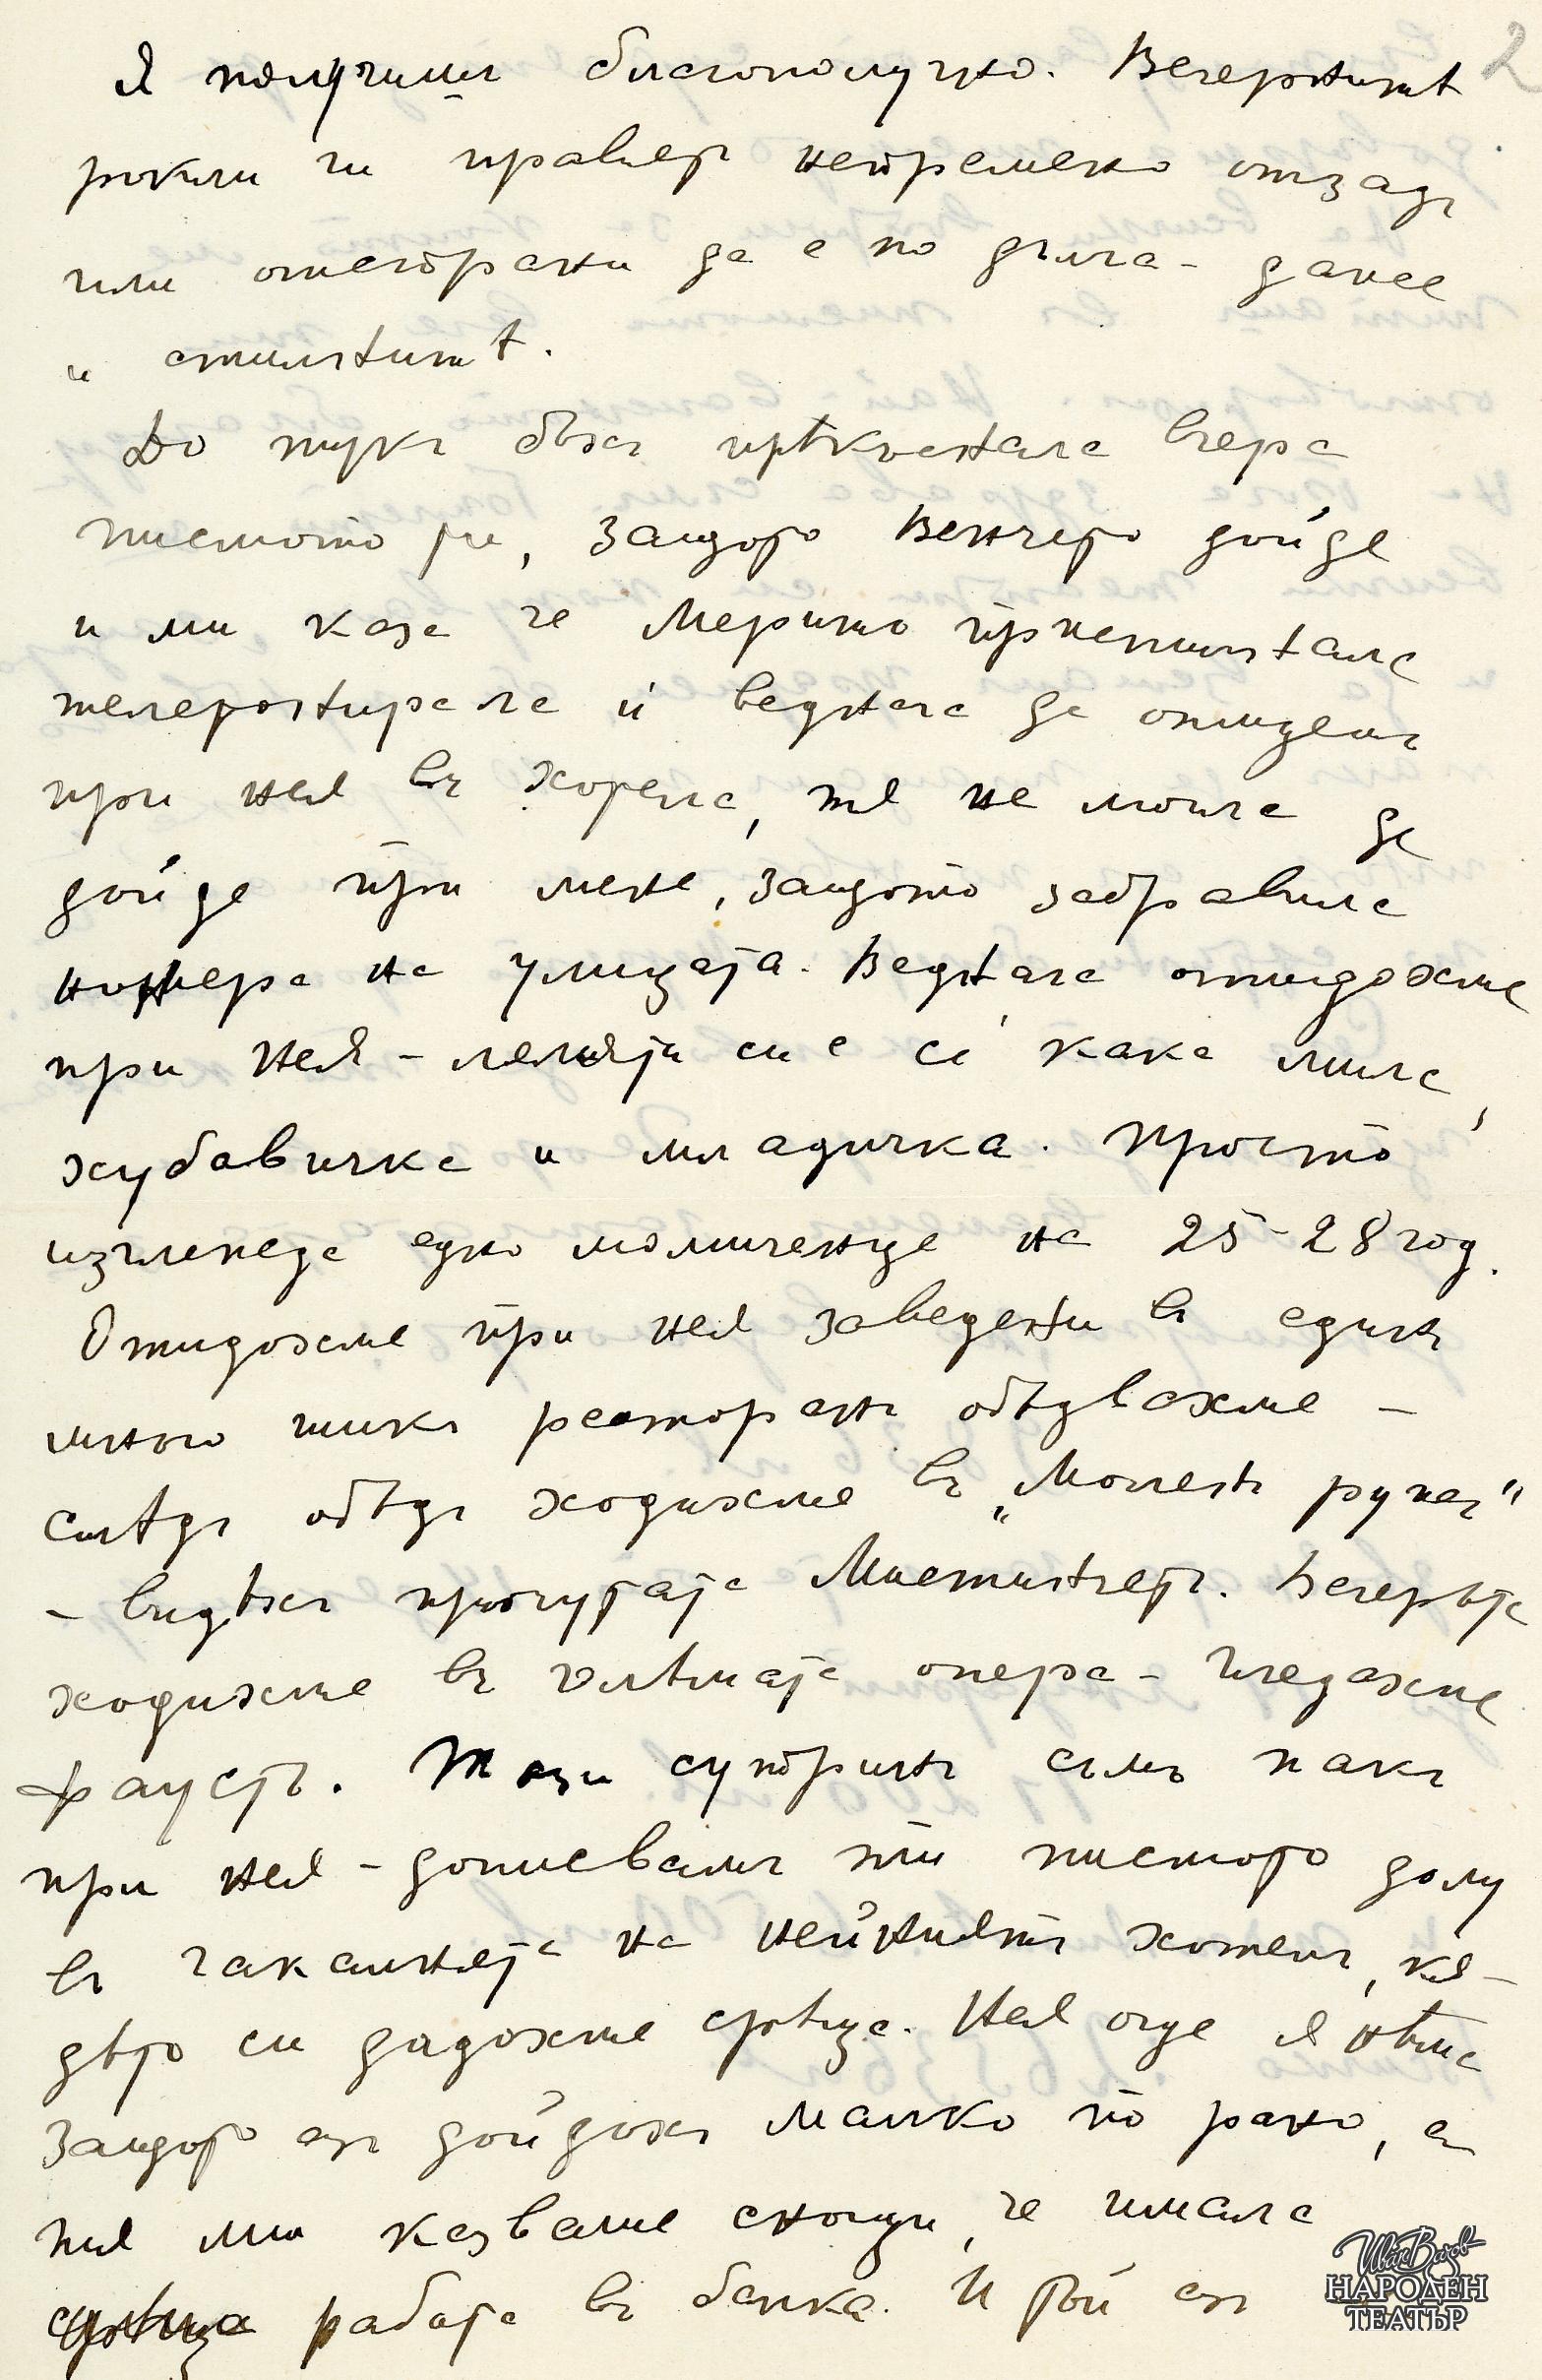 2
я получишъ благополучно. Вечернитѣ
рокли ги правятъ непремено отзадъ
или отстрани да е по дълга - даже
и стилнитѣ.
До тукъ бѣхъ прѣкъснала вчера
писмото ти, защото Венчето дойде
и ми каза че Мерито пристигнала
телефонирала и веднага да отидемъ
при нея въ хотела, тя не могла да
дойде при мене, защото забравила
номера на улицата. Веднага отидохме
при нея - лелята си е се така мила,
хубавичка и младичка. Просто
изглежда едно момиченце на 25-28 год.
Отидохме при нея заведени въ единъ
много шикъ ресторанъ обѣдвахме -
слѣдъ обѣдъ ходихме въ „Моленъ ружъ"
- видѣхъ прочутата Мистингетъ. Вечерьта
ходихме въ голѣмата опера - гледахме
Фаустъ. Тази сутринь съмъ пакъ
при нея - дописвамъ ти писмото долу
въ чакалнята на нейниятъ хотелъ, кя-
дѣто си дадохме срѣща. Нея още я нѣма
защото азъ дойдохъ малко по рано, а
тя ми казваше снощи, че имала
работа въ банка. И той азъ
Иван Вазов
НАРОДЕН
ТЕАТЪР